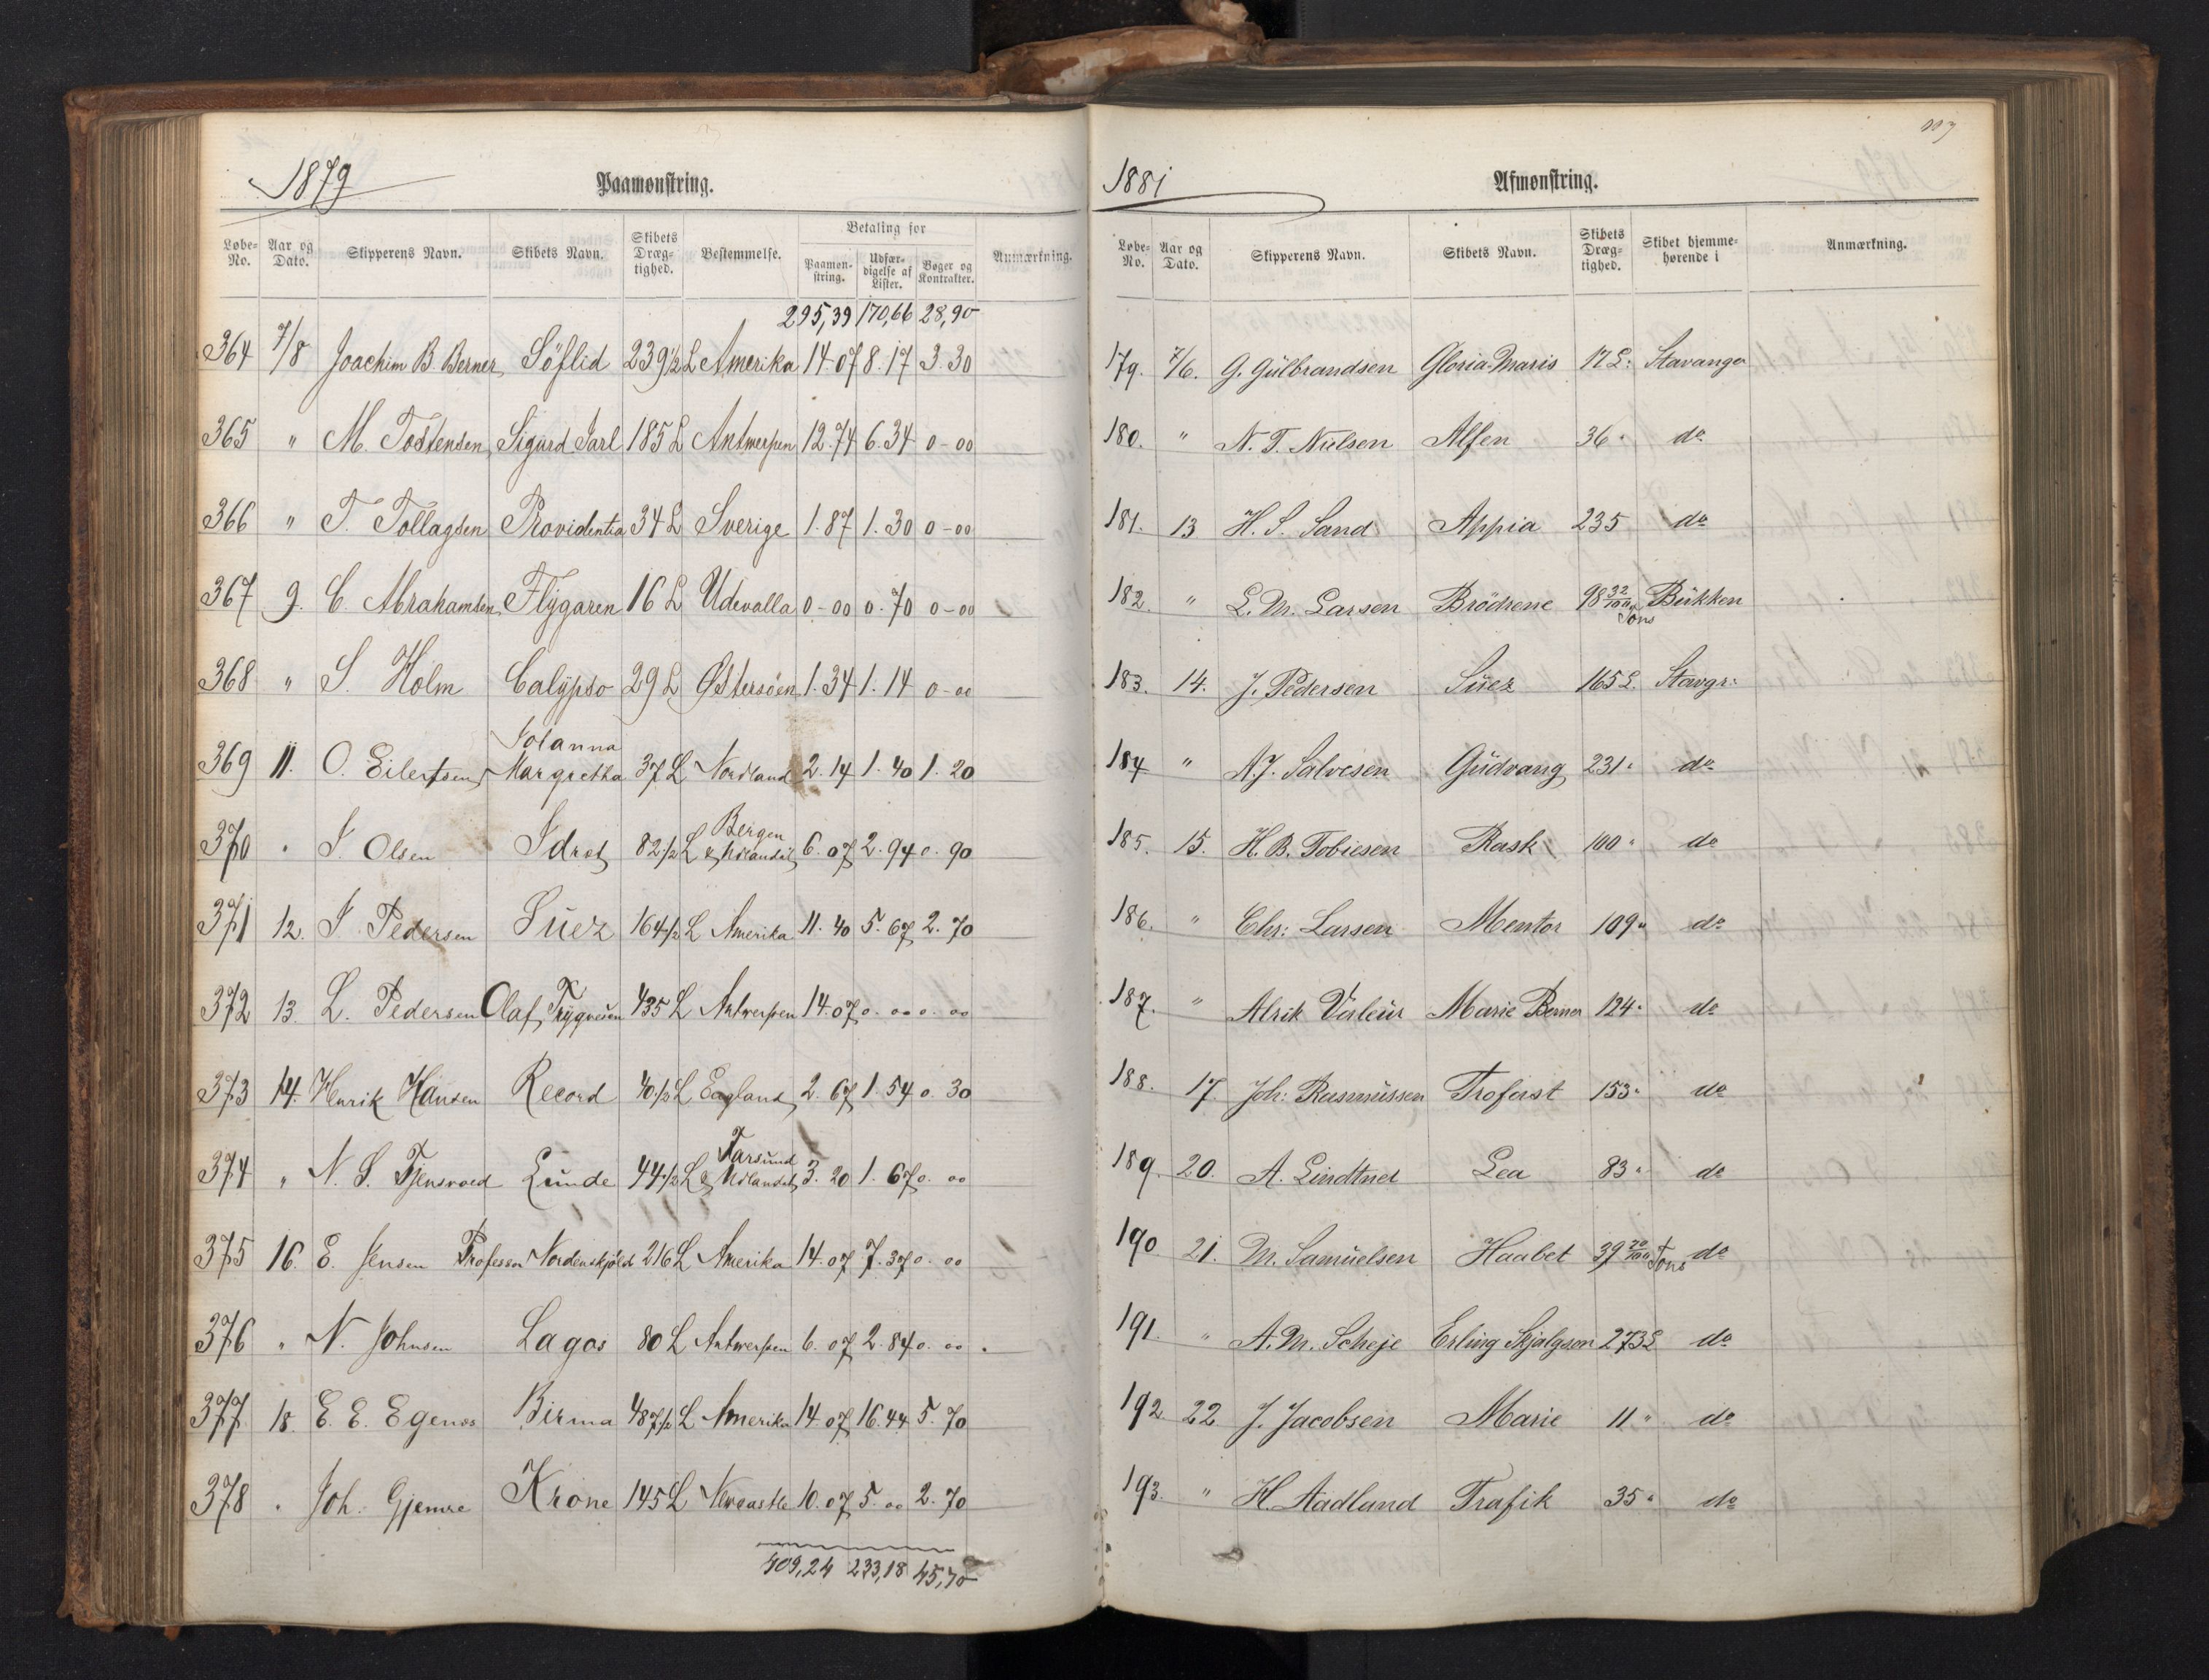 1879 Paamønstring.
Løbe-No. Aar og Dato. Skipperens Navn. Skibets Navn. Skibets Dræg-tighed. Bestemmelse. Betaling for Paamøn-string. Udfær-digelse af Lister. Bøger og Kontrakter. Anmærkning.
295,39 170,66 28,90
364 7/8 Joachim B. Berner Söflid 239 1/2 L Amerika 14.07 8.17 3.30
365 " M. Tostensen Sigurd Jarl 185 L Antwerpen 12.74 6.34 0-00
366 " T. Tollagsen Providentia 34 L Sverige 1.87 1.30 0-00
367 9. C. Abrahamsen Flygaren 16 L Udevalla 0-00 0.70 0-00
368 " S. Holm Calypso 29 L Østersöen 1.34 1.14 0-00
369 11. O. Eilertsen Johanna Margretha 37 L Nordland 2.14 1.40 1.20
370 " J. Olsen Idræt 82 1/2 L Bergen & Udlandet 6.07 2.94 0.90
371 12. J. Pedersen Suez 164 1/2 L Amerika 11.40 5.67 2.70
372 13. L. Pedersen Olaf Trygvesen 435 L Antwerpen 14.07 0.00 0.00
373 14. Henrik Hansen Record 40 1/2 L England 2.67 1.54 0.30
374 " N. S. Tjensvold Lunde 44 1/2 L Farsund & Udlandet 3.20 1.67 0.00
375 16. E. Jensen Professor Nordenskjøld 216 L Amerika 14.07 7.37 0.00
376 " N. Johnsen Lagos 80 L Antwerpen 6.07 2.84 0.00
377 18. E. E. Egenæs Birma 487 1/2 L Amerika 14.07 16.44 5.70
378 " Joh. Gjemre Krone 145 L Newcastle 10.07 5.00 2.70
409,24 233,18 45,70
1881 Afmønstring.
Løbe-No. Aar og Dato. Skipperens Navn. Skibets Navn. Skibets Dræg-tighed. Skibet hjemme-hørende i Anmærkning.
179. 7/6. G. Gulbrandsen Gloria Maris 17 L: Stavanger
180. " N. T. Nielsen Alfen 36 " do
181. 13 H. S. Sand Appia 235 do
182. " L. M. Larsen Brödrene 98 32/100 Tons Bukken
183. 14. J. Pedersen Suez 165 L. Stavgr:
184 " A. J. Salvesen Gudvang 231 " do
185. 15. H. B. Tobiesen Rask 100 " do
186. " Chr: Larsen Mentor 109 " do
187. " Alrik Valeur Marie Berner 124 " do
188. 17. Joh: Rasmussen Trofast 153 " do
189. 20. A. Lindtner Lea 83 " do
190 21. M. Samuelsen Haabet 39 70/100 Tons do
191. " A. M. Scheje Erling Skjalgson 273 L do
192 22. J. Jacobsen Marie 11 " do
193. " H. Aadland Trafik 35 " do